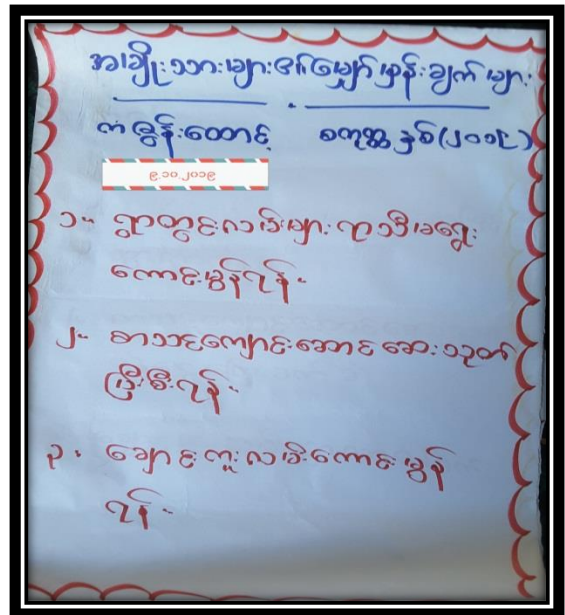 အမျိုးသားများ၏မျှော်မှန်းချက်များ
ကံဇွန်းထောင့် စကုတ္တနှစ်(၂၀၁၉)
၉.၁၀.၂၀၁၉
၁။ ရွာတွင်းလမ်းများ ရာသီမရွေး
ကောင်းမွန်ရန်။
၂။ စာသင်ကျောင်းဆောင် ဆေးသုတ်
ပြီးစီးရန်။
၃။ ချောင်းကူးလမ်းကောင်းမွန်
ရန်။